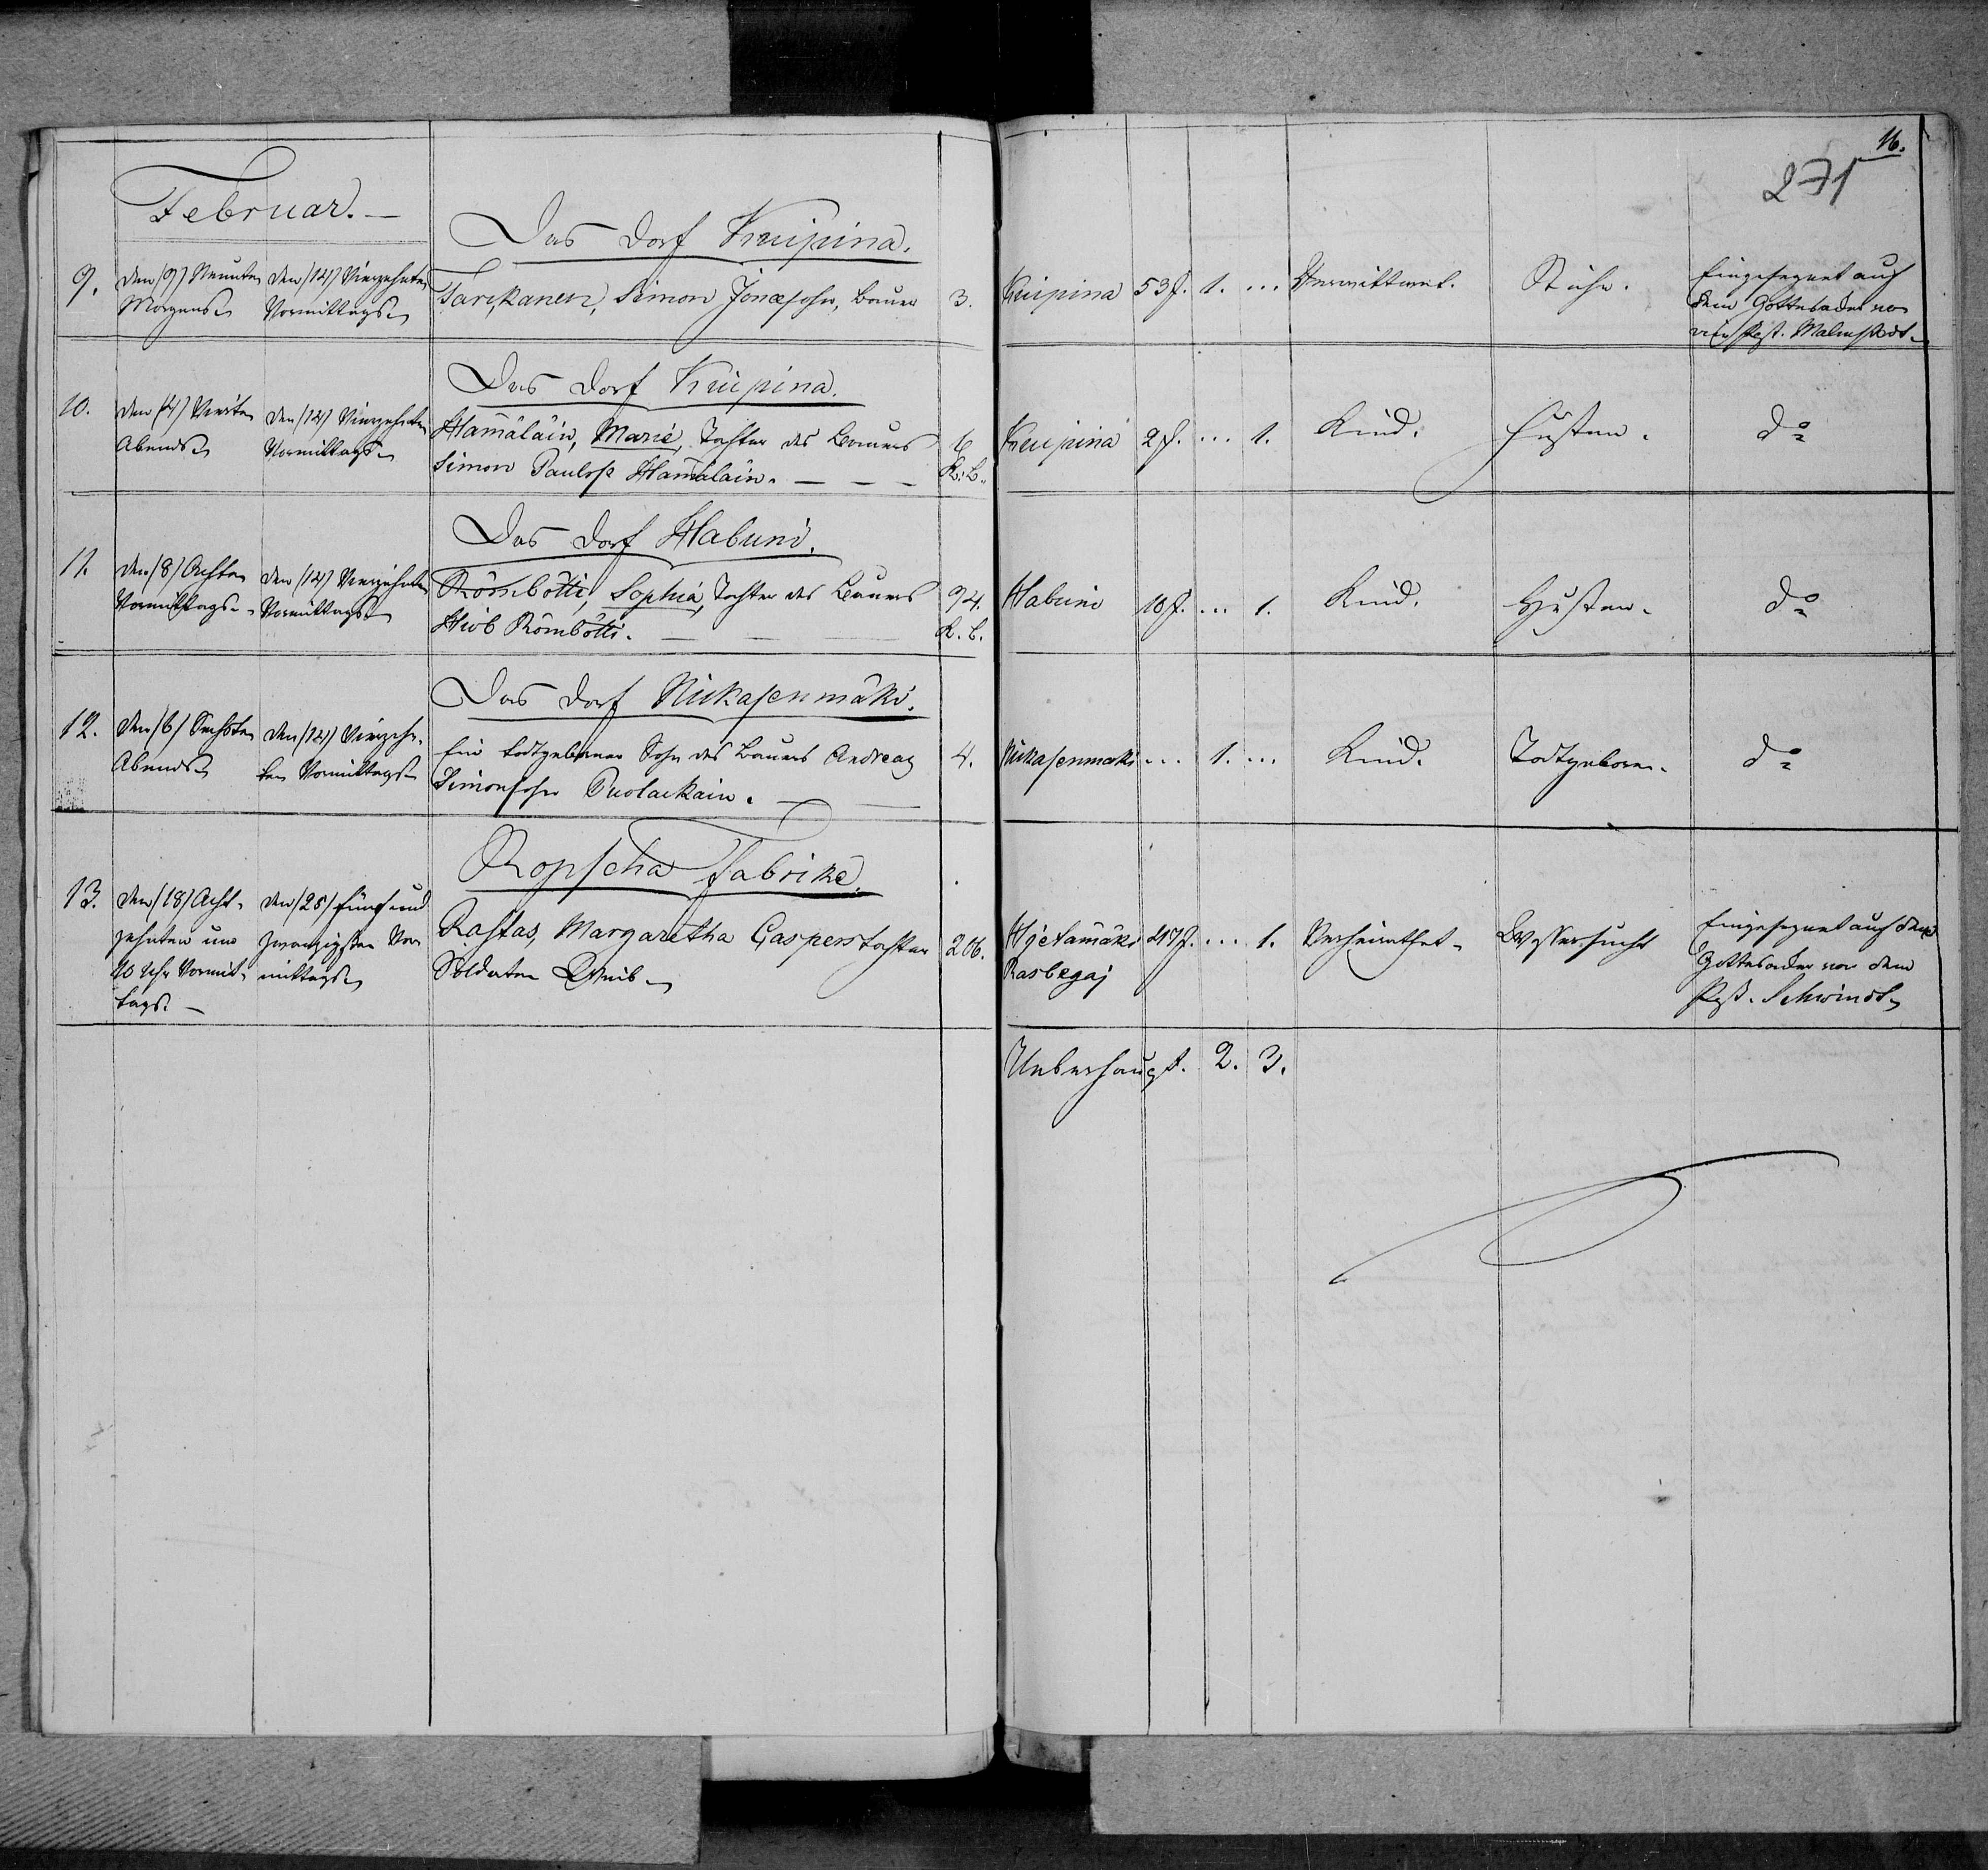 16.
271
Februar.
Das Dorf Kuipina.
9. den (9) Neunten Morgens
den (14) Vierzehnten Vormittags
Tarikanen, Simon Jonassohn, Bauer 3.
Kuipina 53 J. 1. ... Verwittwet.
Eingesegnet auf
dem Gottesacker von
Past. Malmstedt.
Das Dorf Kuipina.
10. den (4) Vierten Abends
den (14) Vierzehnten Vormittags
Hämäläin, Maria, Tochter des Bauers 6
Simon Paulss. Hämäläin. K. B.
Kuipina 2 J. ... 1. Kind. Husten. do
Das Dorf Habuni.
11. den (8) Achten Vormittags
den (14) Vierzehnten Vormittags
Römbötti, Sophia, Tochter des Bauers 94.
Hiob Römbötti. K. B.
Habuni 10 J. ... 1. Kind. Husten. do
Das Dorf Nikasenmäki.
12. den (6) Sechsten Abends
den (14) Vierzehnten Vormittags
Ein todtgeborener Sohn des Bauers Andreas 4.
Simonsohn Puolackain.
Nikasenmäki ... 1. ... Kind. Todtgeboren. do
Ropscha Fabrike.
13. den (18) Achtzehnten um 10 Uhr Vormittags.
den (25) Fünf und zwanzigsten Vormittags
Rastas, Margaretha Gasperstochter 206.
Soldaten Weib
Hjetämäki 47 J. ... 1. Verheirathet. Wassersucht
Rasbegaj
Eingesegnet auf dem
Gottesacker von dem
Past. Schwindt
Ueberhaupt. 2. 3.